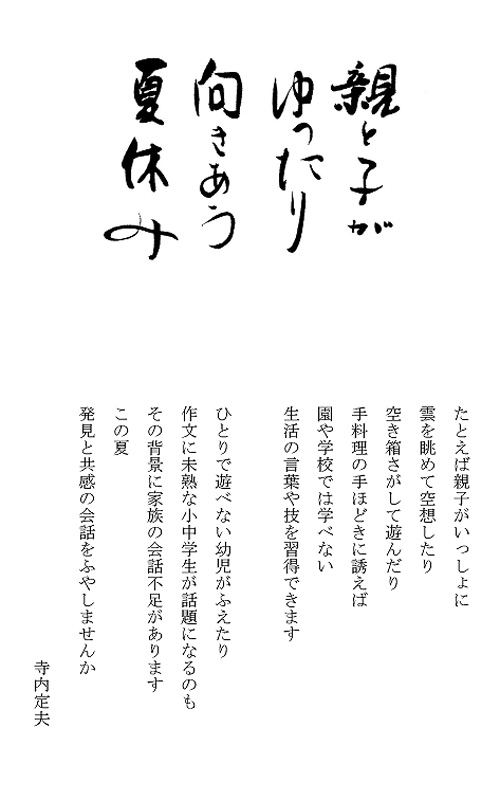 親と子が
ゆったり
向きあう
夏休み
たとえば親子がいっしょに
雲を眺めて空想したり
空き箱さがして遊んだり
手料理の手ほどきに誘えば
園や学校では学べない
生活の言葉や技を習得できます
ひとりで遊べない幼児がふえたり
作文に未熟な小中学生が話題になるのも
その背景に家族の会話不足があります
この夏
発見と共感の会話をふやしませんか
寺内定夫